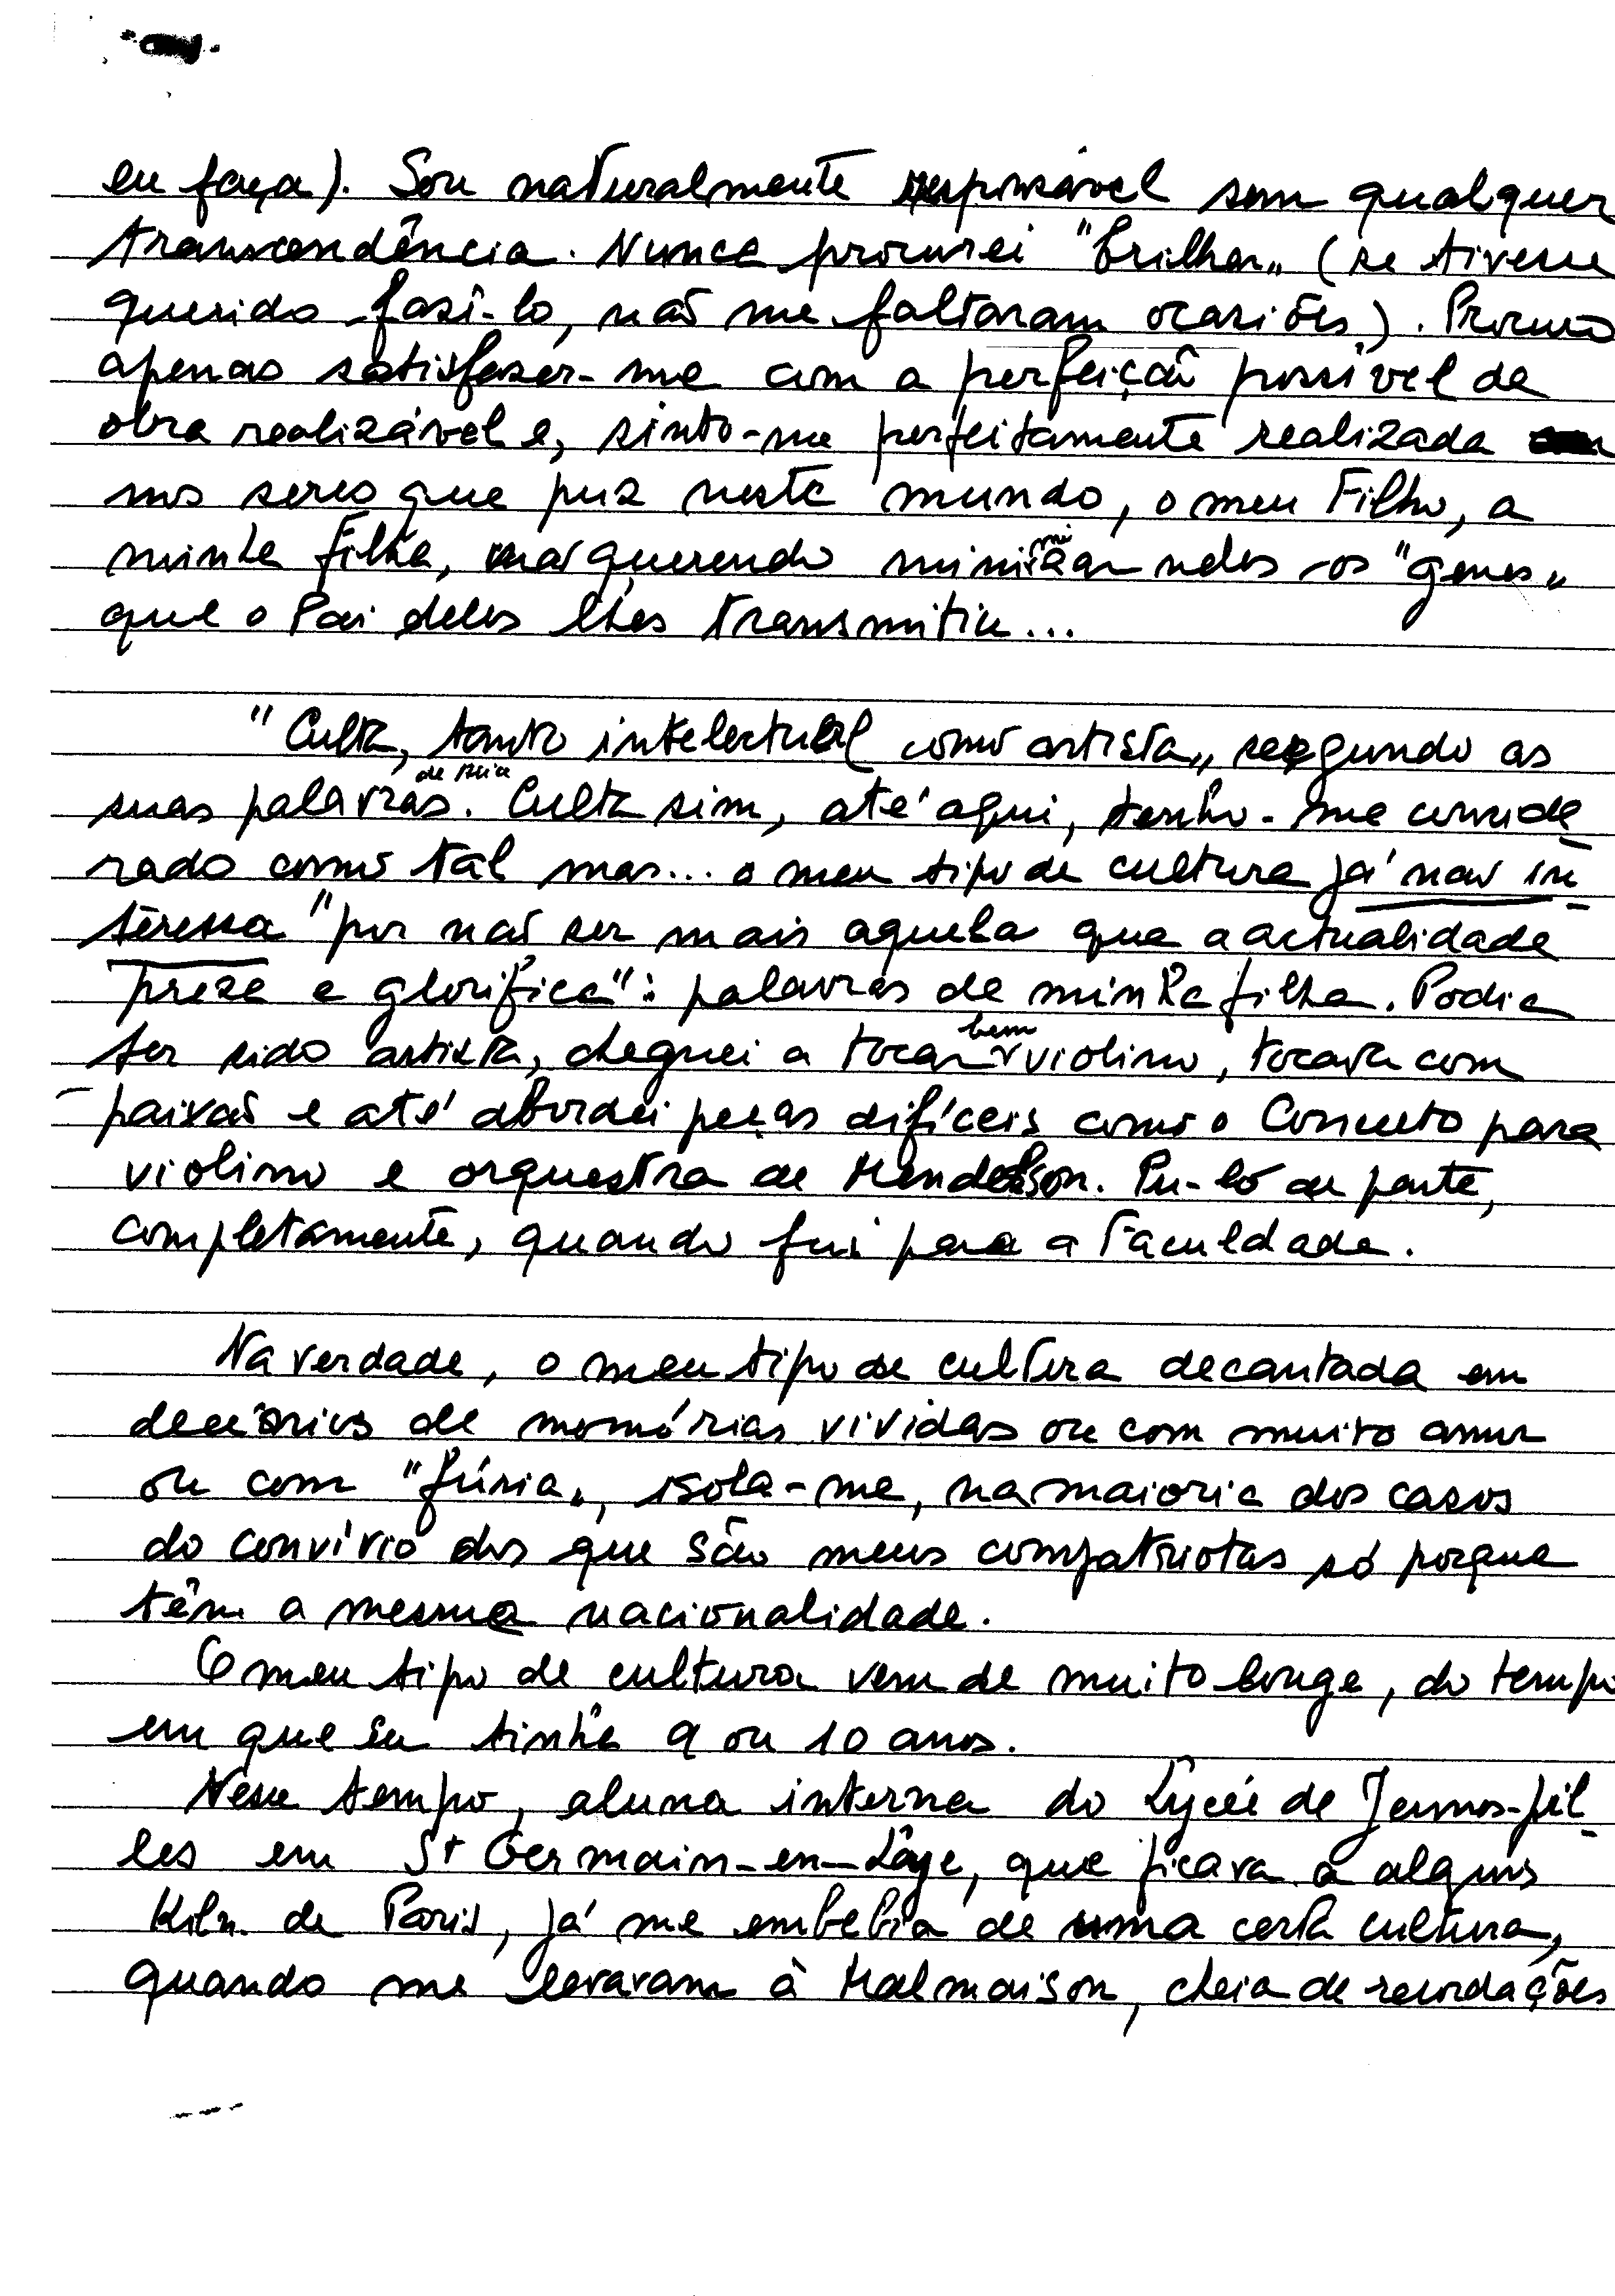 eu faça). Sou naturalmente responsável sem qualquer
transcendência. Nunca procurei "brilhar" (se tivesse
querido fazê-lo, não me faltaram ocasiões). Procuro
apenas satisfazer-me com a perfeição possível da
obra realizável e, sinto-me perfeitamente realizada
nos seres que puz neste mundo, o meu Filho, a
minha filha, não querendo minimizar neles os "genes"
que o Pai deles lhes transmitiu...
"Culta, tanto intelectual como artista" segundo as
suas palavras. Culta sim, até aqui, tenho-me conside
rado como tal mas... o meu tipo de cultura já não in
teressa "por não ser mais aquela que a actualidade
preza e glorifica": palavras de minha filha. Podia
ter sido artista, cheguei a tocar bem violino, tocava com
paixão e até abordei peças difíceis como o Concerto para
violino e orquestra de Mendelson. Pu-lo de parte,
completamente, quando fui para a Faculdade.
Na verdade, o meu tipo de cultura decantada em
decénios de memórias vividas ou com muito amor
ou com "fúria", isola-me, na maioria dos casos
do convívio dos que são meus compatriotas só porque
têm a mesma nacionalidade.
O meu tipo de cultura vem de muito longe, do tempo
em que eu tinha 9 ou 10 anos.
Nesse tempo, aluna interna do Lycée de Jeunes-fil-
les em St Germain-en-Lâye, que ficava a alguns
Kilm. de Paris, já me embebia de uma certa cultura,
quando me levavam à Malmaison, cheia de recordações